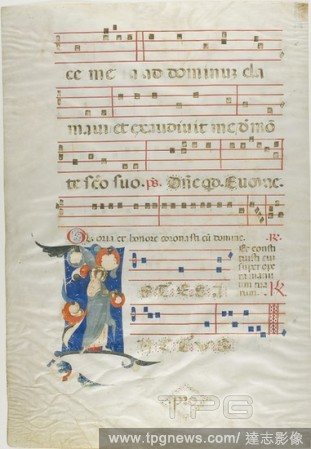 ce me a ad dominum cla
mavi et exaudivit me de mō
te scō suo. ps. Dñe qd. Euouae.
Gloria et honore coronasti eū domine. R.
Et consti
tuisti eū
super ope
ra manu
um tua
rum.
TPG
www.tpgnews.com/ 達志影像